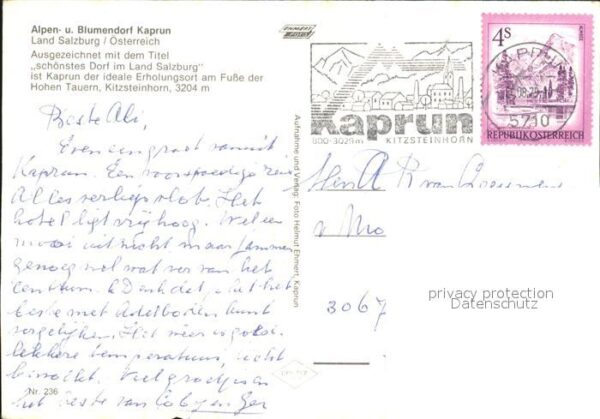 Alpen- u. Blumendorf Kaprun
Land Salzburg / Österreich
Ausgezeichnet mit dem Titel
„schönstes Dorf im Land Salzburg"
ist Kaprun der ideale Erholungsort am Fuße der
Hohen Tauern, Kitzsteinhorn, 3204 m
Beste Ali,
Even een groet vanuit
Kaprun. Een voorspoedige reis
Alles verliep vlot. Het
hotel ligt vrij hoog. Wel een
mooi uitzicht maar jammer
genoeg wel wat ver van het
centrum. Denk dat je het het
beste met Adelboden kunt
vergelijken. Het weer is
lekkere temperatuur, echt
Veel groetjes en
het beste van
Nr. 236
EHMERT
Aufnahme und Verlag: Foto Helmut Ehmert, Kaprun
Kaprun
800-3029m KITZSTEINHORN
4S
REPUBLIK ÖSTERREICH
KAPRUN
5710
3067
privacy protection
Datenschutz